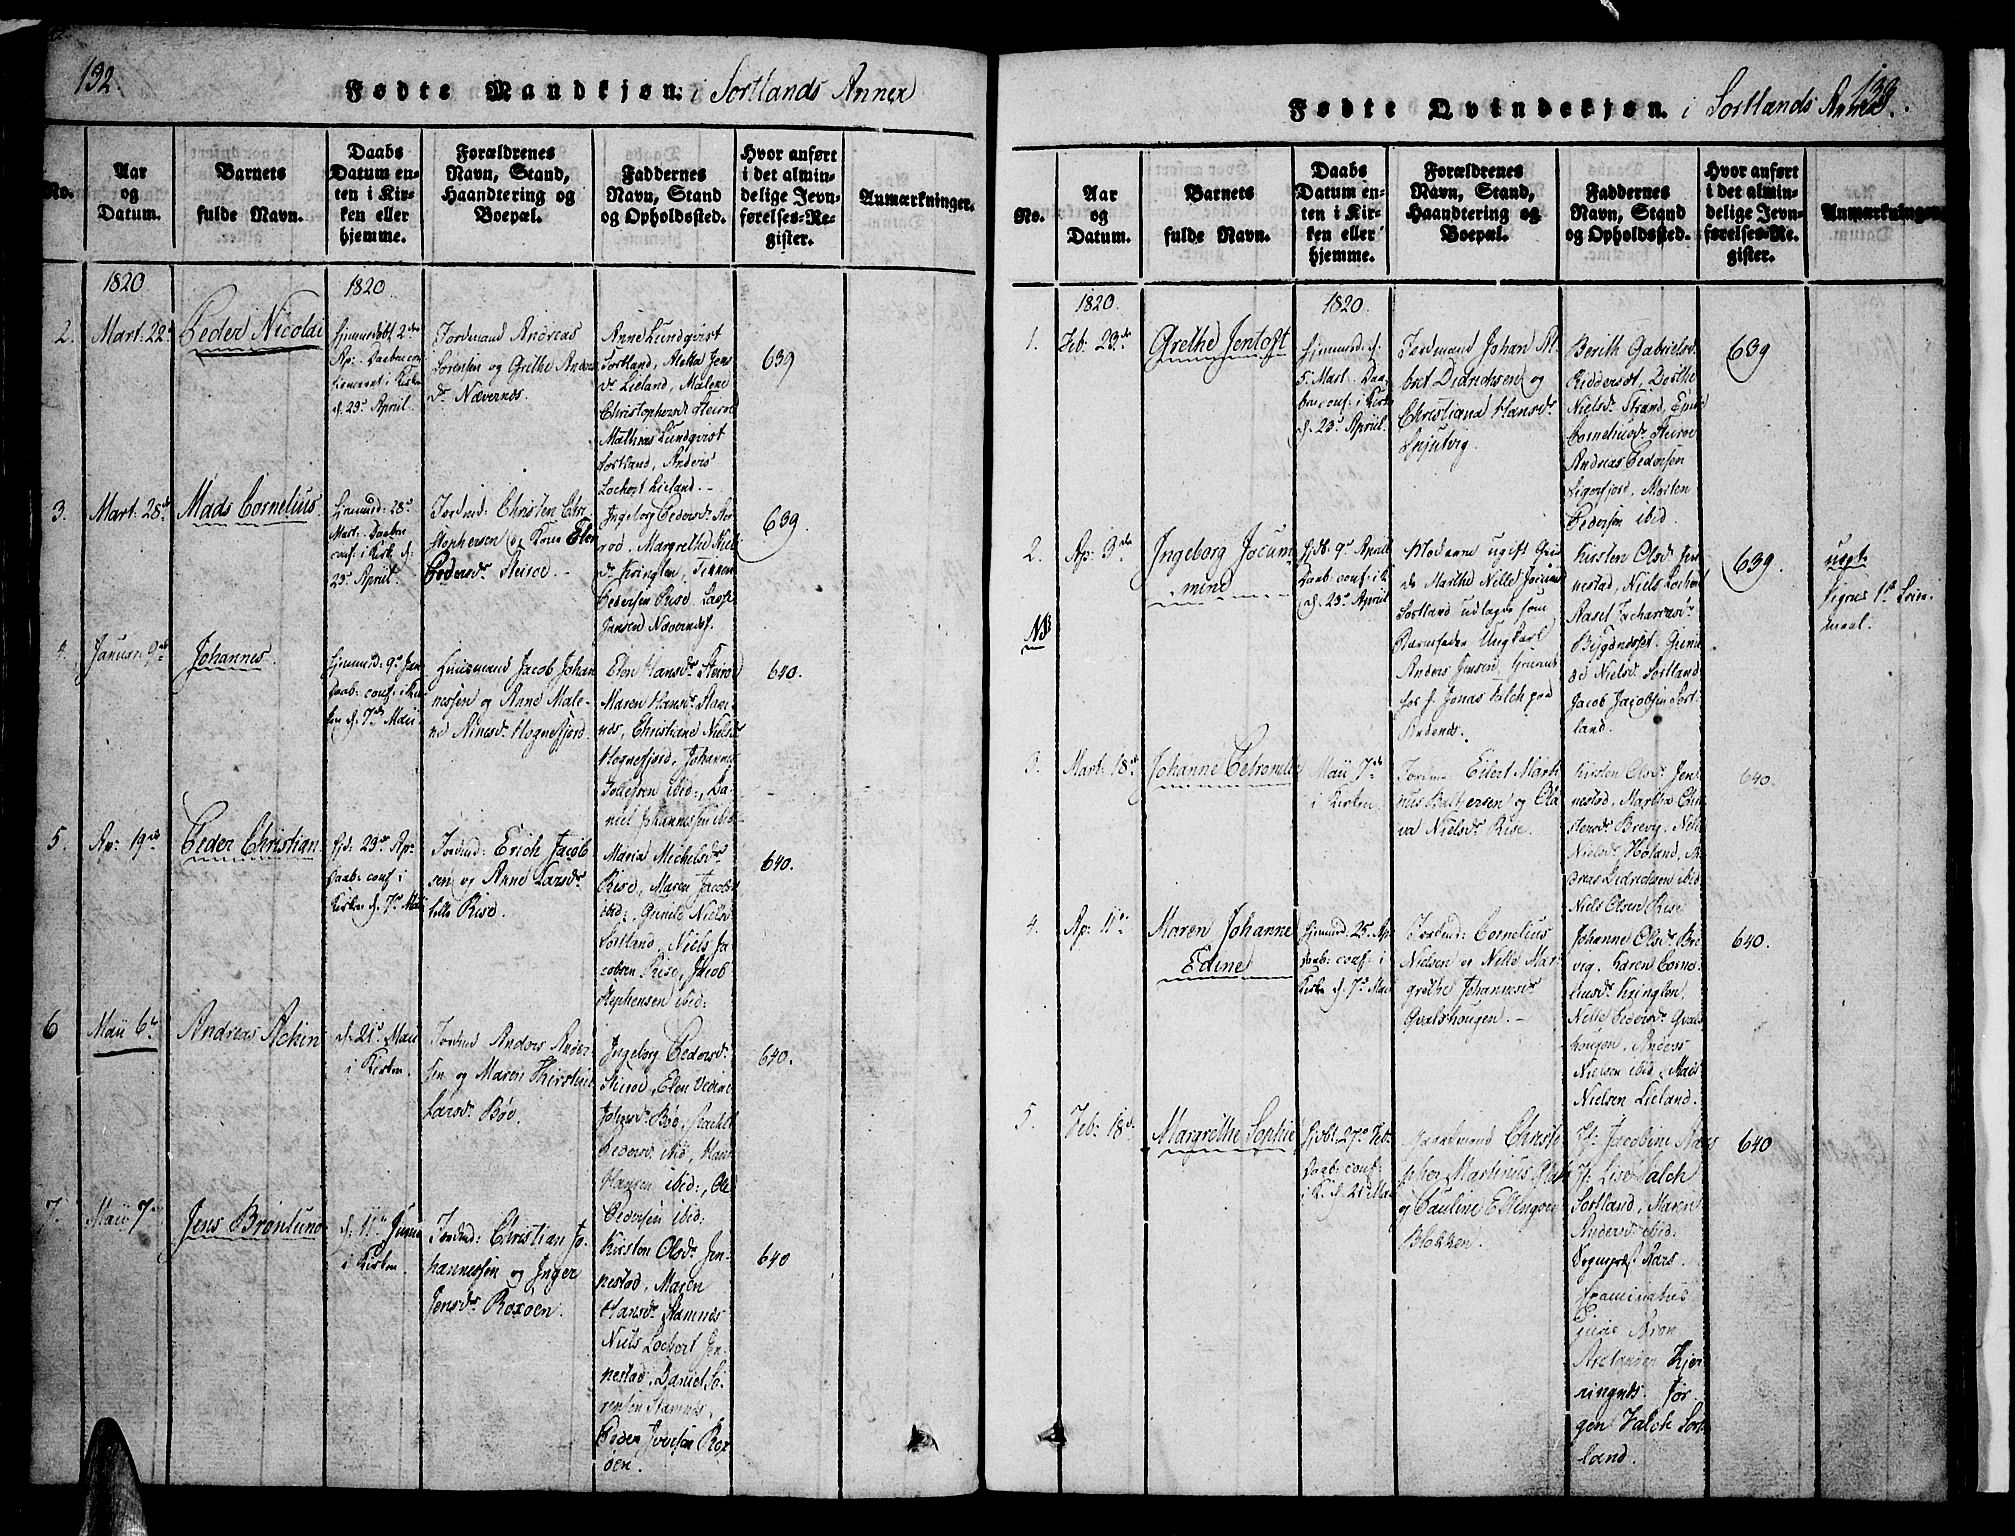 132.
Fødte Mandkjøn. i Sortlands Annex
No.
Aar
og
Datum.
Barnets
fulde Navn.
Daabs
Datum en-
ten i Kir-
ken eller
hjemme.
Forældrenes
Navn, Stand,
Haandtering og
Boepæl.
Faddernes
Navn, Stand
og Opholdssted.
Hvor anført
i det almin-
delige Jevn-
førelses-Re-
gister.
Anmærkninger.
1820
1820
2.
Mart: 22
Peder Nicolai
Ap: Daaben con-
firmeret i Kirken
d. 23d April.
Jordmand Andreas
Sørensen og Grethe Anders
dr Nævernes
Anne Lundqvist
Sortland, Aletta Jens
dr Lieland, Malene
Christophersdr Steiroe
Mathias Lundqvist
Sortland, Anders
Lochert Lieland. -
639
3.
Mart: 28de
Mads Cornelius.
Hjemmed: 28d
Mart. Daaben
conf: i Kirk d.
23d April.
Jordmd: Christen Chri
stophersen og Kone Elen
Pedersdr Steiroe. -
Ingeborg Pedersdr Stei
roe, Margrethe Niels
dr Kringlen,
Pedersen Rise,
Jansen Nævernes.
639
4.
Januar: 9de
Johannes.
Hjemmed: 9d Jan
Daab: conf: i Kir
ken d. 7de Maii
Huusmand Jacob Johan
nessen og Anne Male-
ne Arnesdr Hognefjord.
Elen Hansdr Steiroe
Maren Hansdr Stam
nes, Christiane Nielsdr
Hognefjord, Johannes
Tollefsen ibid:, Da-
niel Johannessen ibid.
640.
5.
Ap: 19de
Peder Christian
Hjd: 23de Ap:
Daab: conf: i
Kirken d. 7d Maii
Jordmd: Erich Jacob
sen og Anne Larsdr
Rise.
Maria Michelsdr
Rise, Maren Jacobsdr
ibid:, Gunild Nielsdr
Sortland, Niels Ja
cobsen Rise, Jacob
Stephensen ibid:
640.
6
Maii 6te
Andreas Achin
d. 21d Maii
i Kirken.
Jordmd Anders Ander-
sen og Maren Kirstine
Larsdr Bøe.
Ingeborg Pedersdr
Steiroe, Elen Vedine
Johansdr Bøe, Rachel
Pedersdr ibid, Hans
Hansen ibid:, Ole
Pedersen ibid:
640.
7.
Maii 7de
Jens Brønlund
d. 11te Junii
i Kirken.
Jordmd: Christian Jo-
hannessen og Inger
Jensdr Roxøen.
Kirsten Olsdr Jen-
nestad, Maren
Hansdr Stamnes
Niels Lochert Jen-
nestad, Daniel Sø-
rensen Stamnes,
Peder Iversen Rox
øen.
640
133.
Fødte Qvindekjøn. i Sortlands Annex.
No.
Aar
og
Datum.
Barnets
fulde Navn.
Daabs
Datum en-
ten i Kir-
ken eller
hjemme.
Forældrenes
Navn, Stand,
Haandtering og
Boepæl.
Faddernes
Navn, Stand
og Opholdssted.
Hvor anført
i det almin-
delige Jevn-
førelses-Re-
gister.
Anmærkninger.
1820.
1820.
1.
Feb: 23de
Grethe Jentoft
Hjemmed: d.
5 Mart. Daa-
ben conf: i Kirk
d. 23d April.
Jordmand Johan Al
bret Didrichsen og
Christiana Hansdr
Berith Gabrielsdr
Dorthe
Nielsdr Strand,
Corneliusdr Steiroe
Andreas Pedersen
Sigerfjord, Morten
Pedersen ibid.
639
2.
NB
Ap: 3de
Ingeborg Jocum
mine
Hjdt. 9d April
Daab: conf: i K
d. 23d April
Moderen ugift Qvin
de Marthe Nille Jocums
Sortland udlagde som
Barnefader Ungkarl
Anders Jensen,
hos H. Jonas Falch paa
Andenes.
Kirsten Olsdr Jen
nestad, Niels Lochert
Rasel Zachariasdr
Bygdnesset, Gunil
de Nielsdr Sortland
Jacob Jacobsen Sort-
land.
639.
uegt.
Pigens 1te Leier-
maal.
3.
Mart: 18de
Johanne Petronelle
Maii 7de
i Kirken
Jordmd Eilert Marti
nus Baltzersen og Ola
va Nielsdr Rise.
Kirsten Olsdr Jen-
nestad, Martha Chri-
stensdr Brevig, Nille
Nielsdr Holand, An
dreas Didrichsen ibid
Niels Olsen Rise
640.
4.
Ap: 11te
Maren Johanne
Edine
Hjemmed: 25. Ap
Daab: conf: i
Kirken d. 7d Maii
Jordmd: Cornelius
Nielsen og Nille Mar-
grethe Johannesdr
Qvalshougen. -
Johanne Olsdr Bre
vig, Karen Corne-
liusdr Kringlen,
Nille Pedersdr Qvals
hougen, Anders
Nielsen ibid, Mads
Nielsen Lieland.
640.
5.
Feb: 18de
Margrethe Sophie
Hjdt. 27d Feb.
Daab: conf:
i K. d. 21 Maii
Christo
pher Martinus
og Pauline Ellingsen
Blokken.
Jf: Jacobine Aars
Jf: Lise Falch
Sortland, Maren
Andersdr ibid.
Sognepræst Aars.
Examinatus
juris Bron
Axelanden Kjer
ringnes. Jør
gen Falch Sort
land.
640